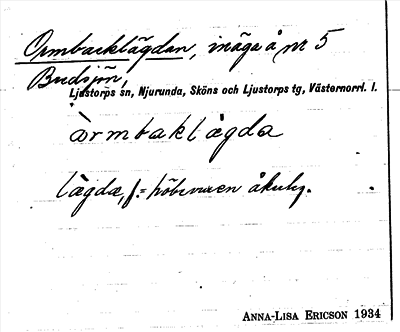 Ormbacklägdan, inäga å nr 5
Budsjön,
Ljustorps sn, Njurunda, Sköns och Ljustorps tg, Västernorrl. l.
ärmbaklägda
lägda, f. =
Anna-Lisa Ericson 1934